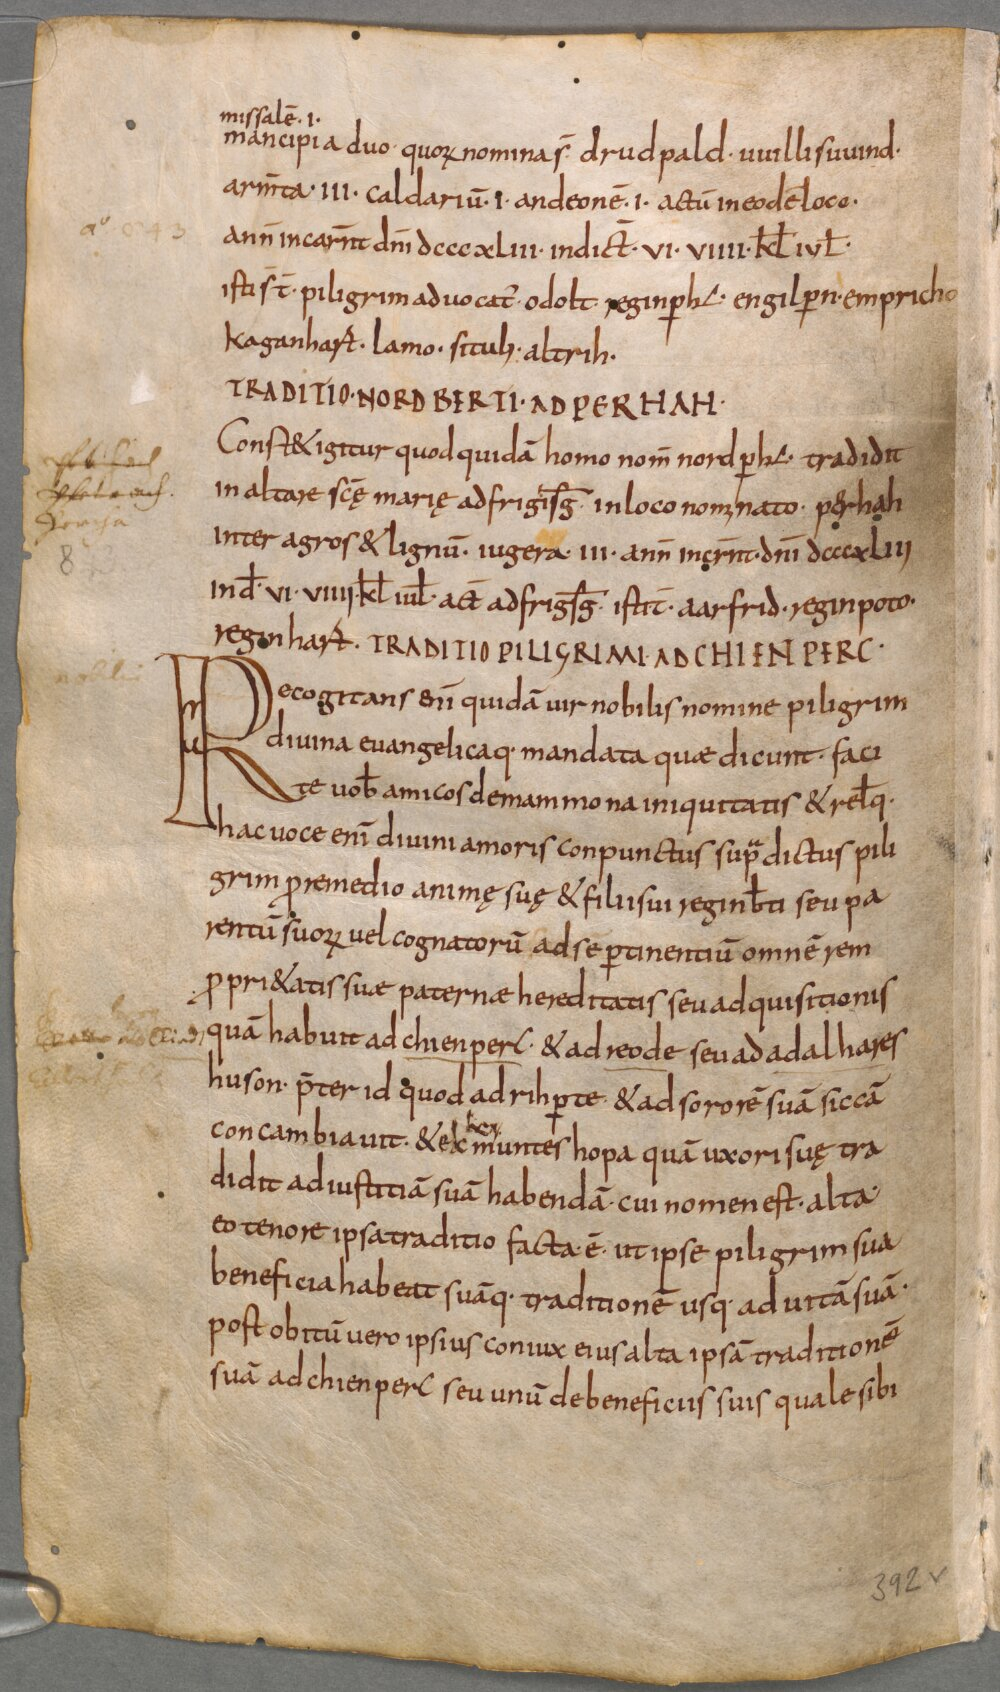 missalē · I ·
mancipia duo · quoꝝ nomina s̄ · drudpald · uuillisuuind ·
arm̄ta · III · caldariū · I · andeonē · I · actū in eodē loco ·
ann̄ incarn̄t dn̄i dcccxLIII · indict̄ · VI · VIIII · kł iuł ·
isti s̄t̄ · piligrim aduocat̄ · odolt · reginꝑht · engilꝑn · empricho
kaganhart · lamo · situli · altrih ·
TRADITIO · NORDBERTI · AD PERHAH ·
Const& igitur quod quidā homo nom̄ nordꝑht · tradidit
in altare sc̄ę marię ad frigisḡ · in loco nomnato · perhah
inter agros & lignū · iugera · III · ann̄ incrn̄t · dn̄i dcccxLIII
ind̄ · VI · VIIII · kł iuł · act̄ ad frigsḡ · istit̄ · aarfrid · reginpoto ·
reginhart · TRADITIO PILIGRIMI · AD CHIENPERC ·
Recogitans eni quidā uir nobilis nomine piligrim
diuina euangelicaq · mandata quæ dicunt · faci
te uob̄ amicos de mammona iniquitatis & relq̄ ·
hac uoce enī diuini amoris conpunctus sup̄dictus pili
grim ꝓ remedio animę suę & filii sui reginb̄ti seu pa
rentū suoꝝ uel cognatorū ad se ꝑtinentiū omnē rem
ꝓpri&atis suæ paternæ hereditatis seu adquisitionis
quā habuit ad chienperc · & ad reode seu ad adalhares
huson · p̄ter id quod ad rihꝑte · & ad sororē suā siccā
concambiauit · & ex muntes hopa quā uxori suę tra
didit ad iustitiā suā habendā · cui nomen est · alta ·
eo tenore ipsa traditio facta ē · ut ipse piligrim sua
beneficia habeat suāq · traditionē usq · ad uitā suā ·
post obitū uero ipsius coniux eius alta ipsā traditionē
suā ad chienperc seu unū de beneficiis suis quale sibi
392 v